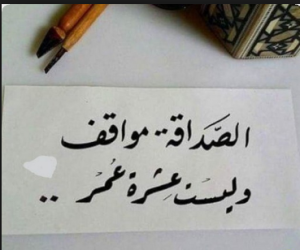 الصَّدَاقة.. مواقف
وليسَت عِشرة عُمرْ ..